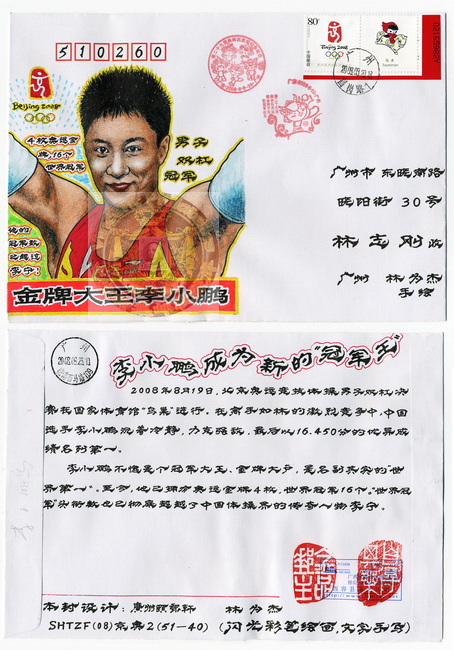 510260
Beijing 2008
4枚奥运金
牌16个
世界冠军
男子
双杠
冠军
他的
冠军数
已超过
李宁!
金牌大王李小鹏
80分
Beijing 2008
广州
广州市 东晓南路
晓阳街 30号
林志刚 收
广州 林为杰
手绘
广州
李小鹏成为新的"冠军王"
2008年8月19日,北京奥运竞技体操男子双杠决
赛在国家体育馆"鸟巢"进行。在高手如林的激烈竞争中,中国
选手李小鹏沉着冷静,力克强敌,最后以16.450分的优异成
绩名列第一。
李小鹏不愧是个冠军大王、金牌大户,是名副其实的"世
界第一"。至今,他已拥有奥运金牌4枚,世界冠军16个。"世界冠
军"头衔数也已彻底超越了中国体操界的传奇人物李宁。
本封设计:广州颐邮轩 林为杰
SHTZF(08)京奥2(51-40) (闪光彩笔绘画,文字手写)